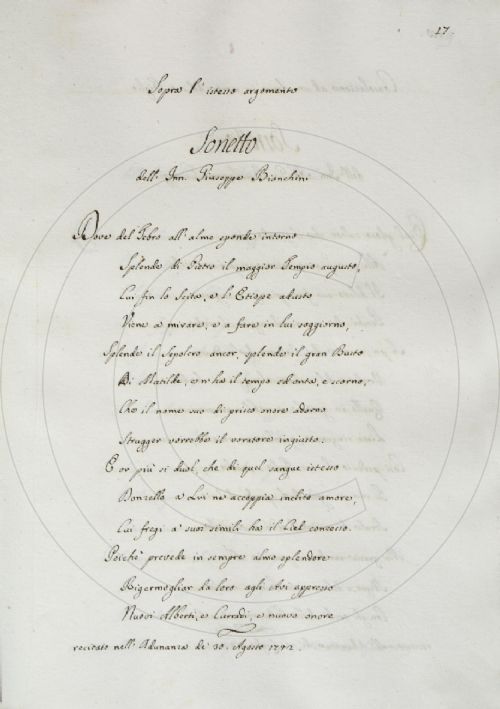 17.
Sopra l'istesso argomento
Sonetto
dell' Inn. Giuseppe Bianchini
Dove del Tebro all' alme sponde intorno
Splende di Pietro il maggior Tempio augusto,
Cui fin lo Scita, e l'Etiope adusto
Viene a mirare, e a fare in lui soggiorno,
Splende il Sepolcro ancor, splende il gran Busto
Di Matilde, e n'ha il tempo ed onta, e scorno,
Che il nome suo di prisco onore adorno
Strugger vorrebbe il voratore ingiusto.
E or più si duol, che di quel sangue istesso
Donzella a Lui ne accoppia inclito amore,
Cui fregi a' suoi simili ha il Ciel concesso.
Poichè prevede in sempre almo splendore
Rigermogliar da loro agli Avi appresso
Nuovi Alberti, e Curradi, e nuovo onore
recitato nell' Adunanza de' 30. Agosto 1772.